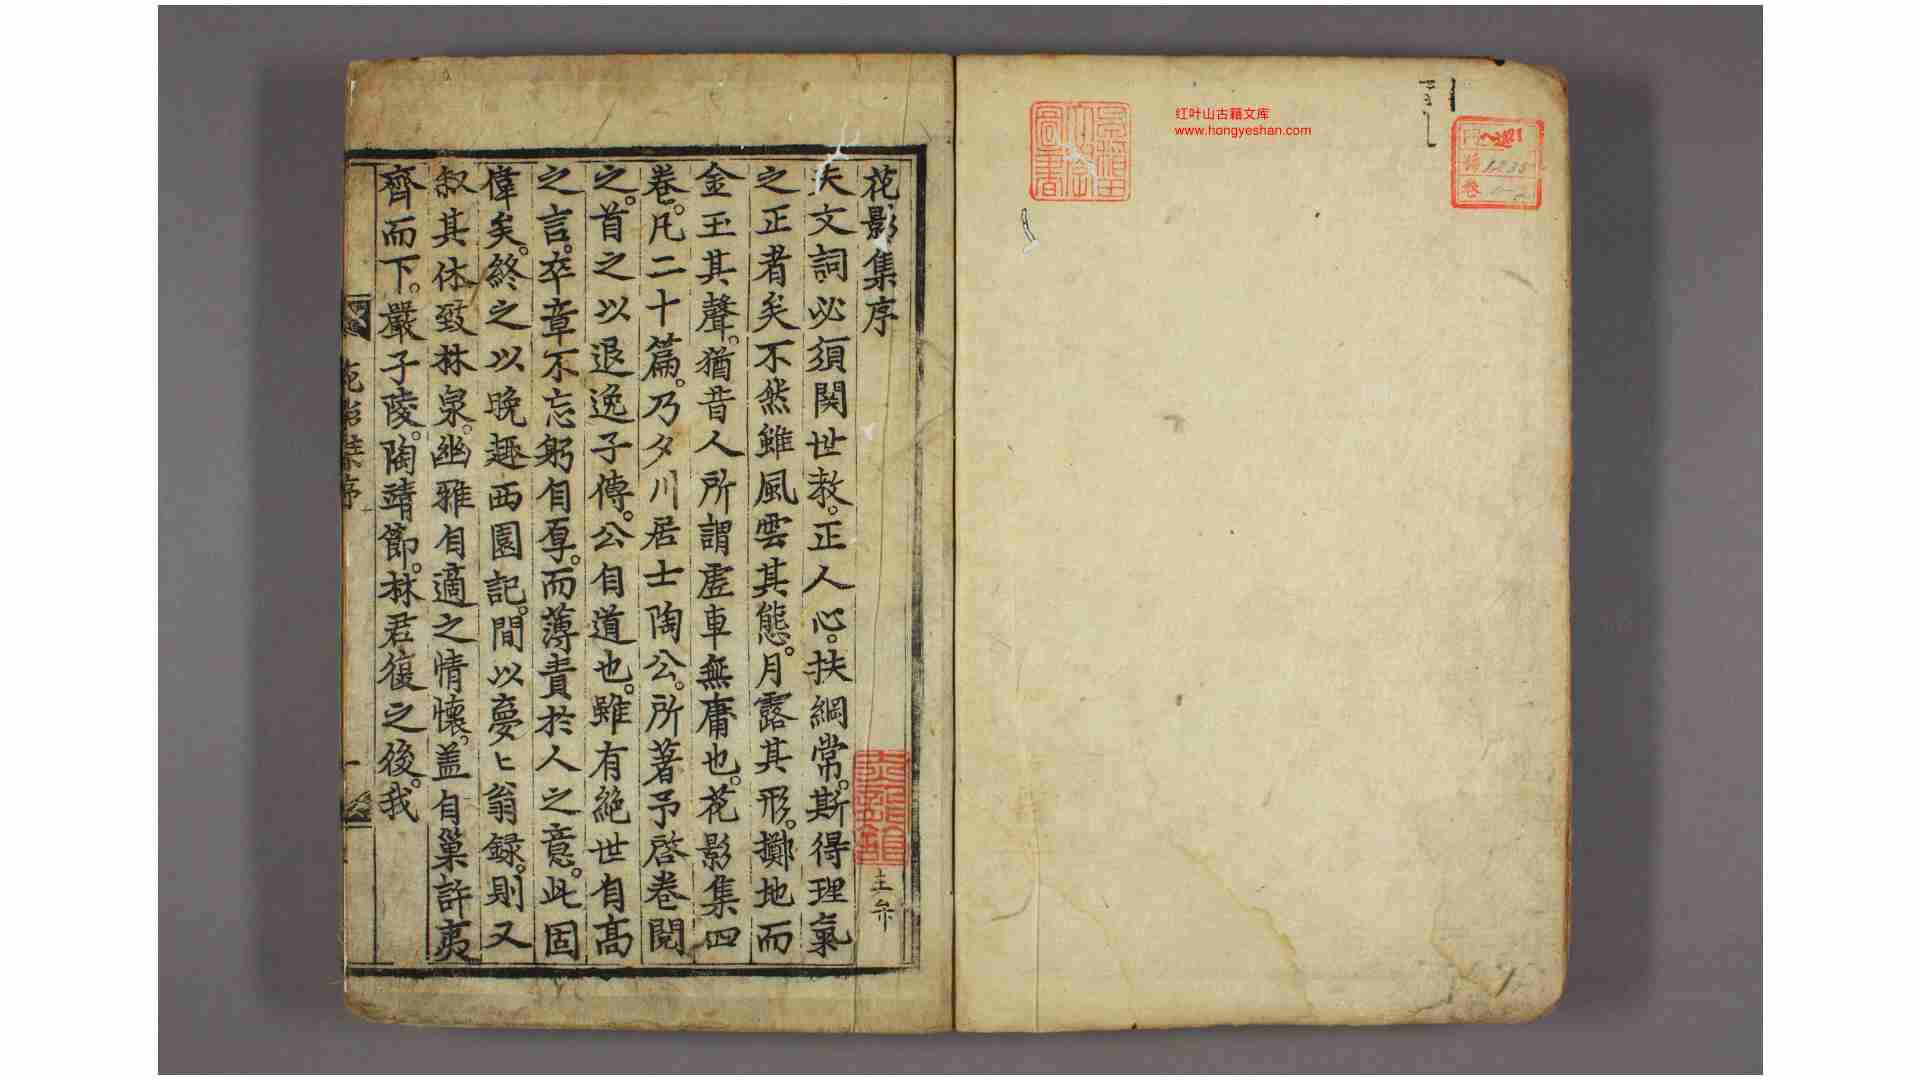 红叶山古籍文库
www.hongyeshan.com
花影集序
夫文詞必須関世教。正人心。扶綱常。斯得理氣
之正者矣不然雖風雲其態。月露其形。擲地而
金玉其聲。猶昔人所謂虗車無庸也。花影集四
卷。凡二十篇。乃夕川居士陶公。所著予啓卷閱
之。首之以退逸子傳。公自道也。雖有絶世自高
之言。卒章不忘躬自厚。而薄責於人之意。此固
偉矣。終之以晚趣西園記。間以夢〻翁録。則又
叙其休致林泉。幽雅自適之情懷。盖自巢許夷
齊而下。嚴子陵。陶靖節。林君復之後。我
花影集序
一